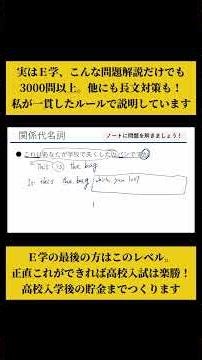 実はE学、こんな問題解説だけでも
3000問以上。他にも長文対策も！
私が一貫したルールで説明しています
関係代名詞
ノートに問題を解きましょう！
これはあなたが学校で失くしたカバンですか
This is the bag
Is this the bag which you lost
E学の最後の方はこのレベル。
正直これができれば高校入試は楽勝！
高校入学後の貯金までつくります